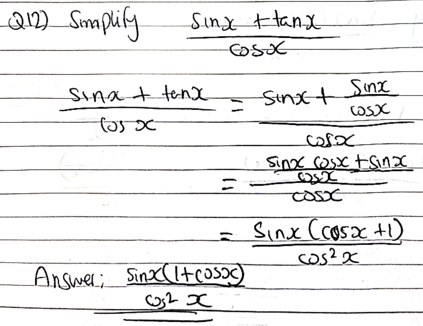 Q12) Simplify (sinx + tanx)/(cosx)
(sinx + tanx)/(cos x) = (sinx + (sinx)/(cosx))/(cosx)
= ((sinx cosx + sinx)/(cosx))/(cosx)
= (sinx (cosx + 1))/(cos² x)
Answer; (sinx(1+cosx))/(cos² x)